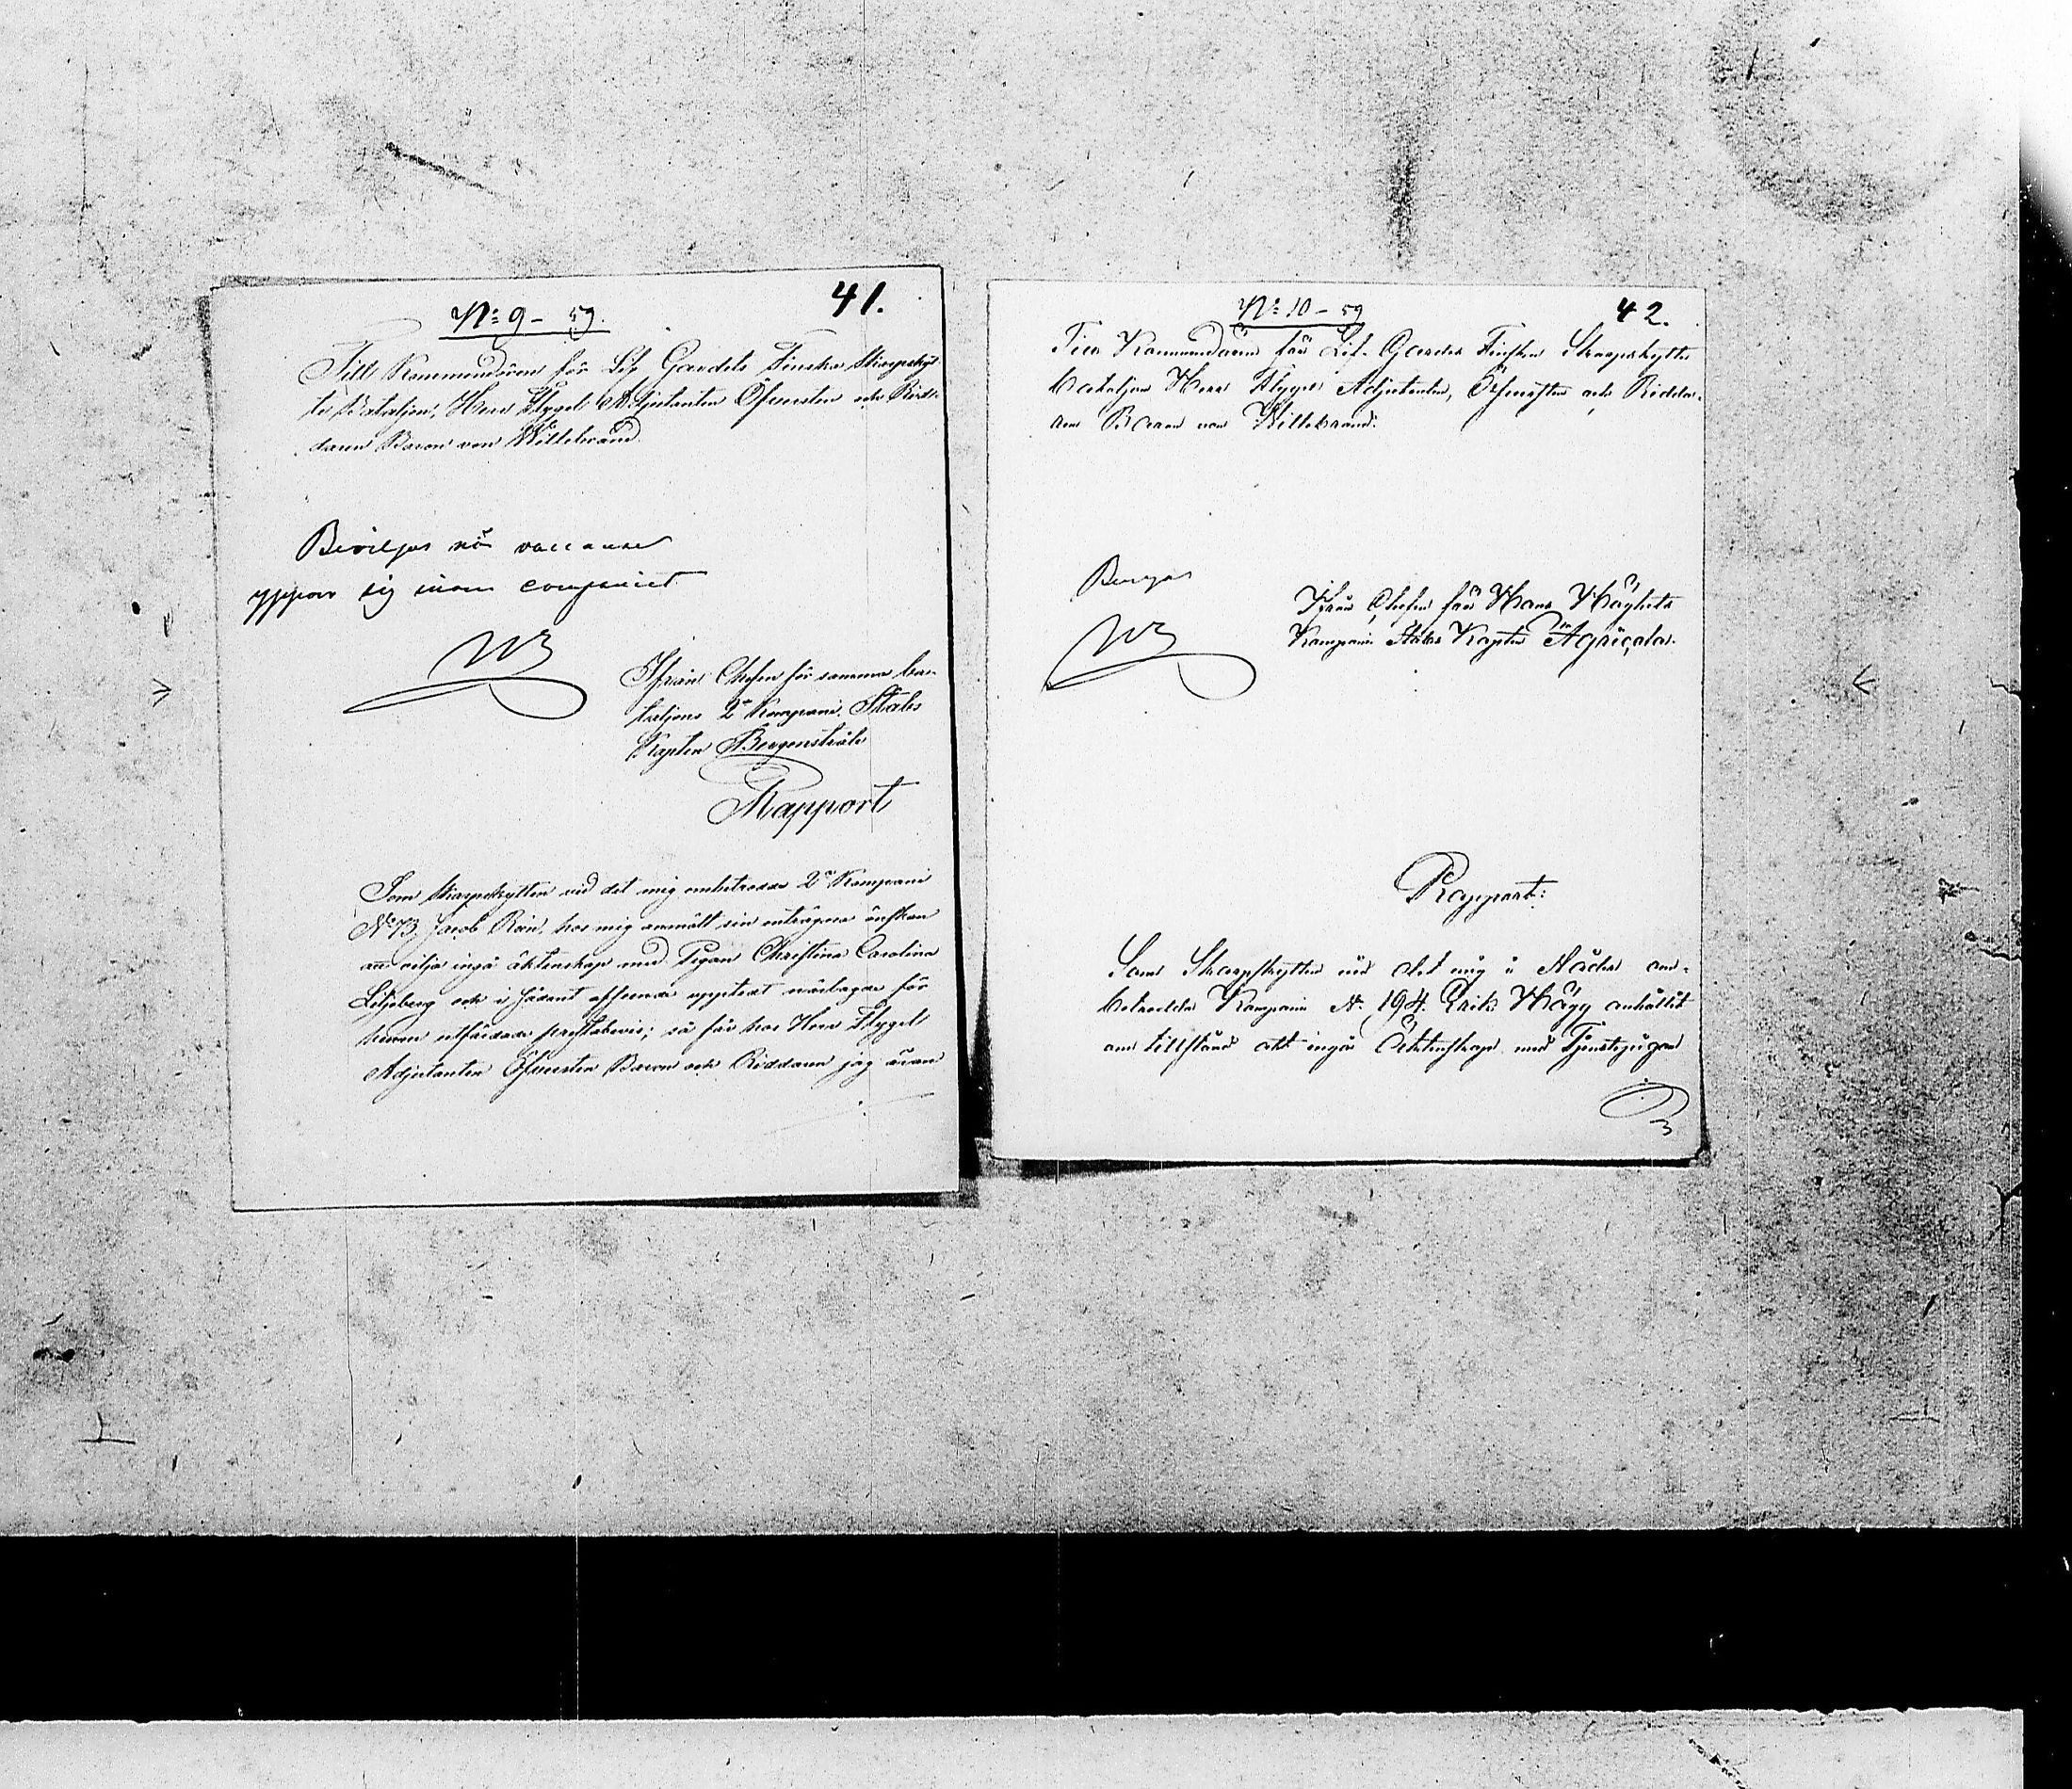 41.
No 9 - 59.
Till Kommendören för Lif Gardets Finska Skarpskyt-
te Bataljon, Herr Flygel Adjutanten Öfversten och Rid-
daren Baron von Willebrand.
Beviljas när vaccance
yppar sig inom compagniet
WB
Ifrån Chefen för samma ba-
taljons 2a Kompani. Stabs
Kapten Bergenstråle
Rapport
Som skarpskytten vid det mig ombetrodda 2a Kompani
No 73. Jacob Ren, hos mig anmält sin enträgna önskan
att vilja ingå äktenskap med Pigan Christina Carolina
Liljeberg och i sådant afseende upptedt närlagde för
henne utfärdade prestabevis; så får hos Herr Flygel
Adjutanten Öfversten Baron och Riddaren jag äran
42.
No 10 - 59
Till Kommendören för Lif-Gardes Finska Skarpskytte
bataljon Herr Flygel Adjutanten, Öfversten och Riddar-
en Baron von Willebrand.
Beviljas
WB
Ifrån Chefen för Hans Höghets
Kompani Stabs Kapten Agricola.
Rapport:
Som Skarpskytten vid det mig i Nåder an-
betrodda Kompani N. 194. Erik Hägg anhållit
om tillstånd att ingå Äktenskap med Tjenstepigan